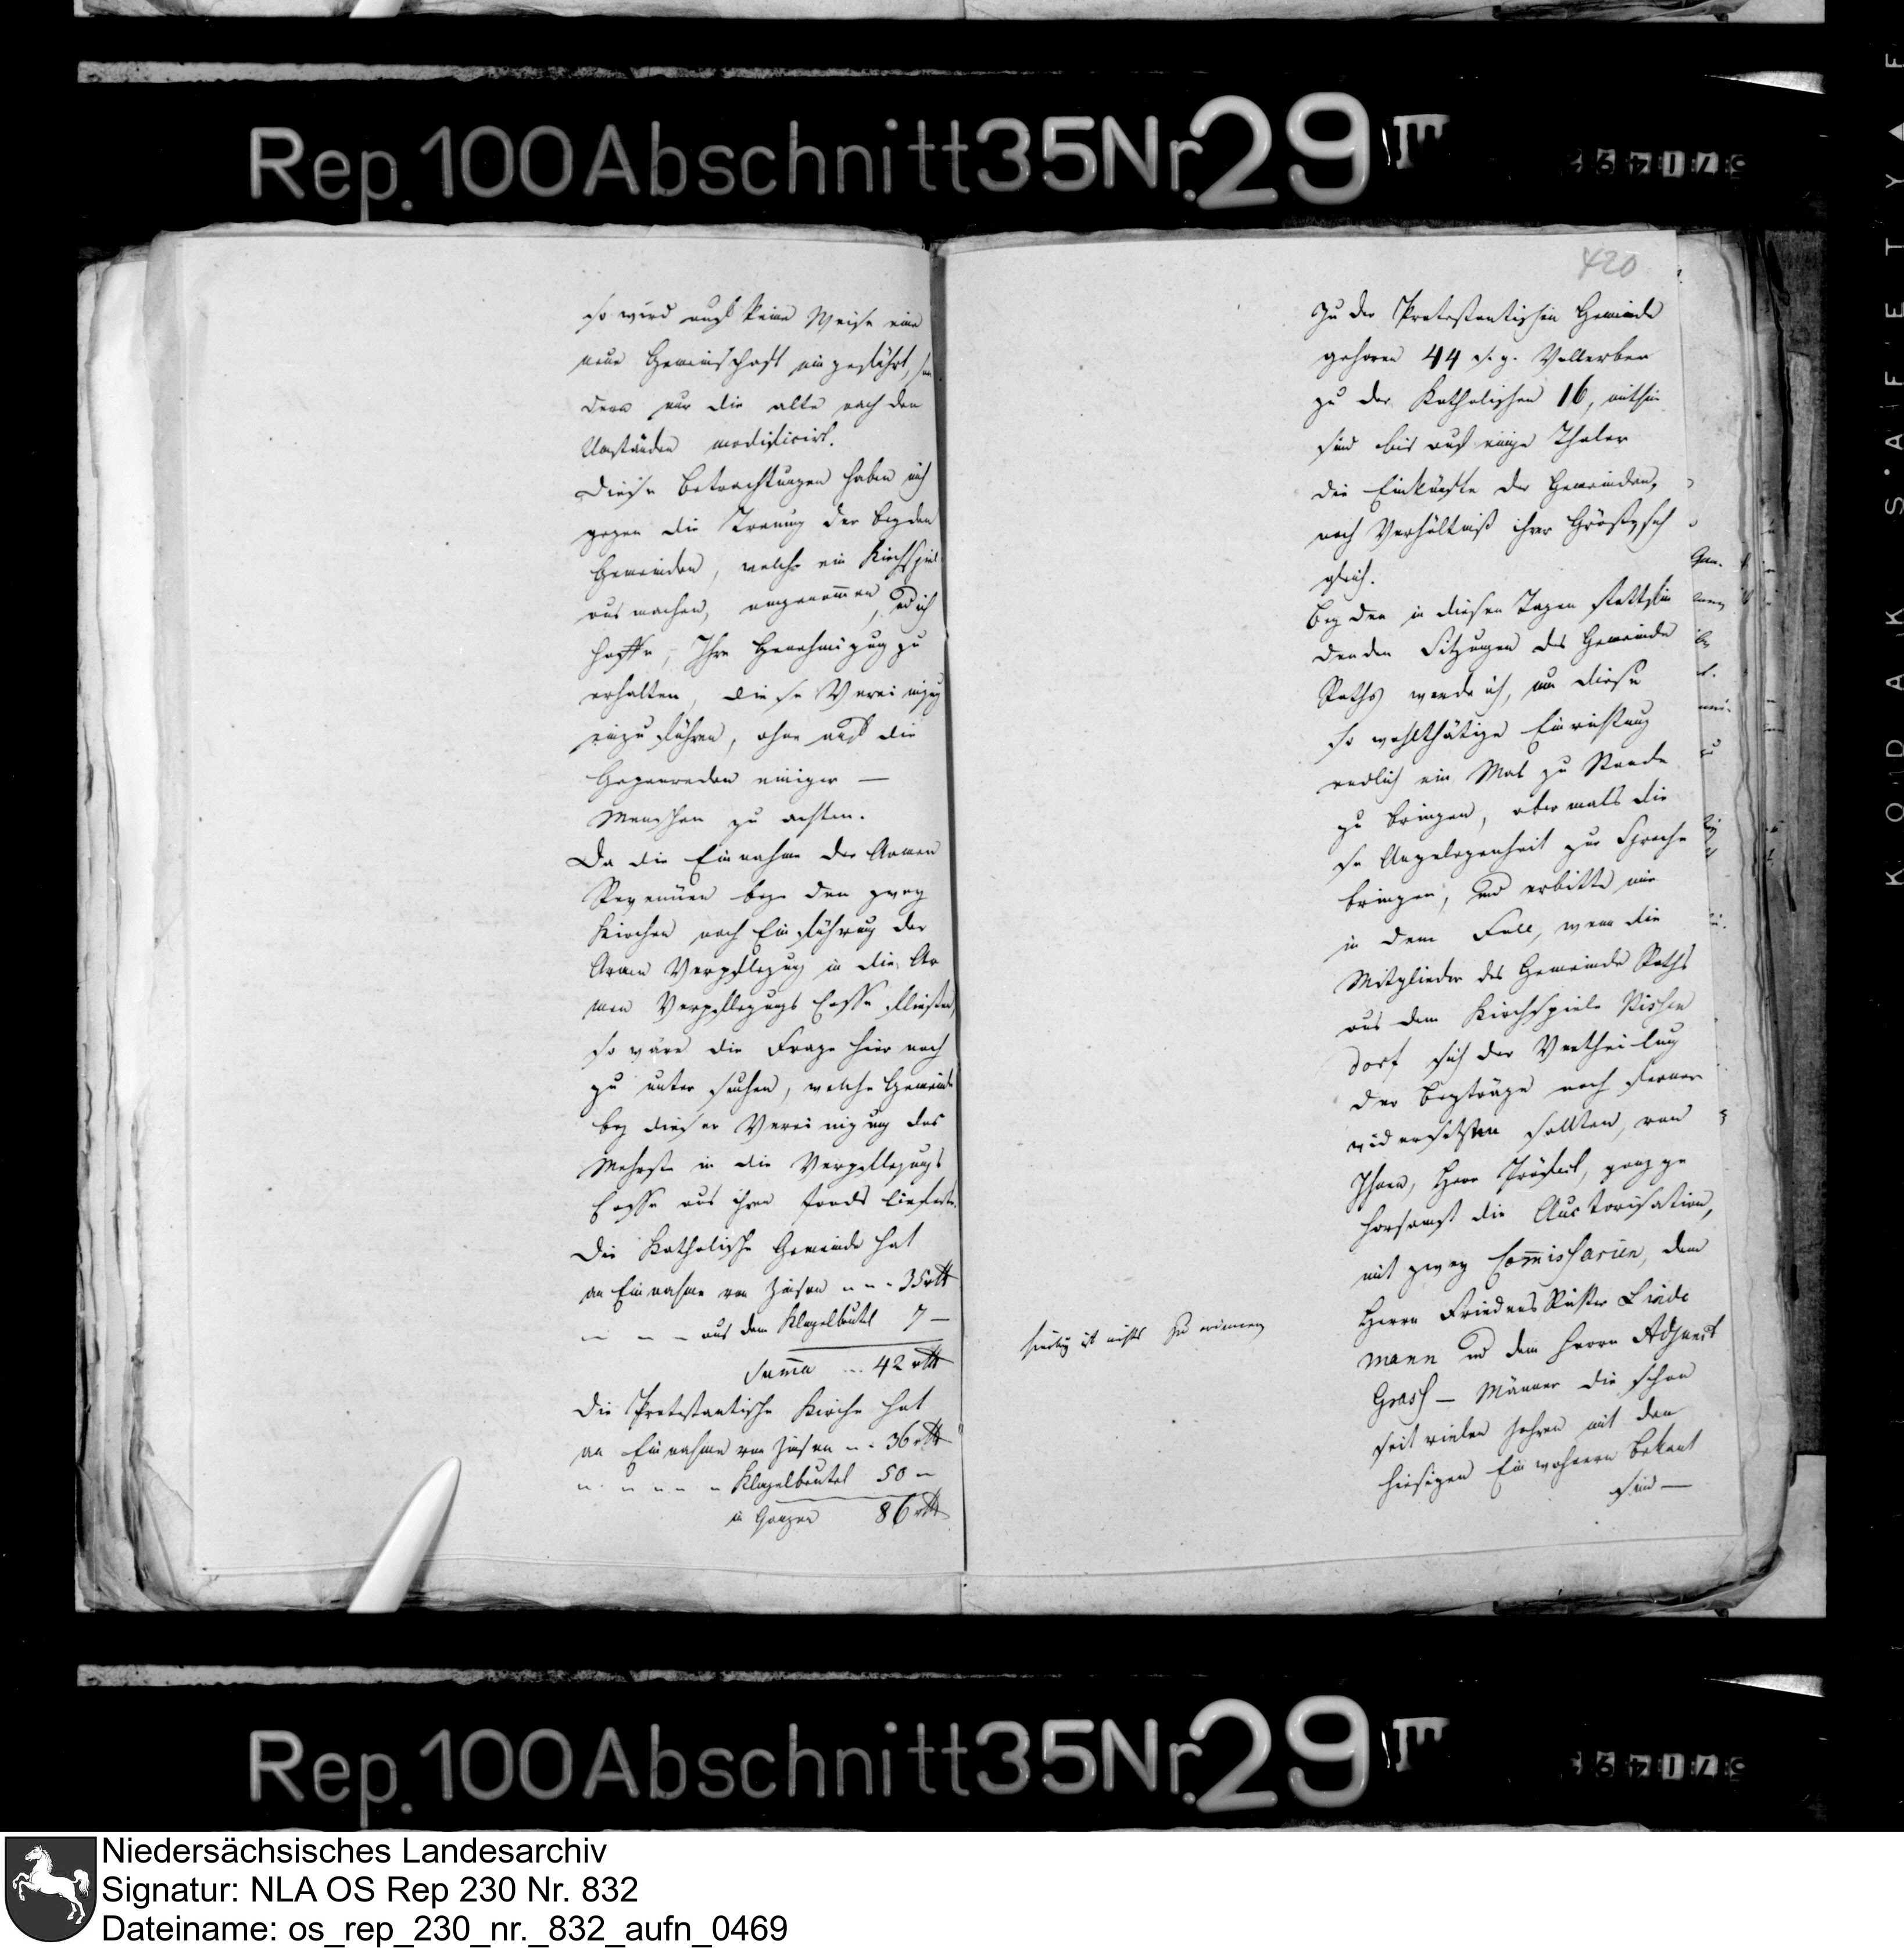 Rep. 100 Abschnitt 35 Nr. 29 III
so wird auf keine Weise eine
neue Gemeinschaft eingeführt, son
dern nur die alte nach den
Umständen modificirt.
Diese Betrachtungen haben mich
gegen die Trenung der beyden
Gemeinden, welche ein Kirchspiel
aus machen, eingenommen, und ich
hoffe, Ihre Genehmigung zu
erhalten, diese Vereinigung
einzuführen, ohne auf die
Gegenreden einiger —
Menschen zu achten.
Da die Einnahme der Armen
Revenüen bey den zwey
Kirchen nach Einführung der
Armen Verpflegung in die Ar
men Verpflegungs Casse fließen,
so wäre die Frage hier noch
zu unter suchen, welche Gemeinde
bey dieser Vereinigung das
Mehrste in die Verpflegungs
Casse aus ihren fonds lieferte.
Die Katholische Gemeinde hat
an Einnahme von Zinsen - - - 35 rtlr
— — — aus dem Klingelbeutel 7 —
Summa ... 42 rtlr
Die Protestantische Kirche hat
an Einnahme von Zinsen - - 36 rtlr
" " " " " Klingelbeutel 50 "
in Ganzen 86 rtlr
420
Zu der Protestantischen Gemeinde
gehoren 44 s. g. Vollerben
zu der Katholischen 16, mithin
sind bis auf einige Thaler
die Einkünfte der Gemeinden,
nach Verhältniß ihrer Größe sich
gleich.
Bey den in diesen Tagen stattfin
denden Sitzungen des Gemeinde
Raths werde ich, um diese
so wohlthätige Einrichtung
endlich ein Mal zu Stande
zu bringen, abermals die
se Angelegenheit zur Sprache
bringen, und erbitte mir
in dem Fall, wenn die
Mitglieder des Gemeinde Raths
aus dem Kirchspiele Vissen
dorf sich der Vertheilung
der Beyträge noch ferner
widersetzen sollten, von
Ihnen, Herr Präfect, ganz ge
horsamst die Auctorisation,
mit zwey Commissarien, dem
Herrn Friedens Richter Linde
mann und dem Herrn Adjunct
Grass — Männer die schon
seit vielen Jahren mit den
hiesigen Einwohnern bekant
sind —
hierbey ist nichts zu erinnern
Rep. 100 Abschnitt 35 Nr. 29 III
KODAK S'AFETY ▲ F
Niedersächsisches Landesarchiv
Signatur: NLA OS Rep 230 Nr. 832
Dateiname: os_rep_230_nr._832_aufn_0469